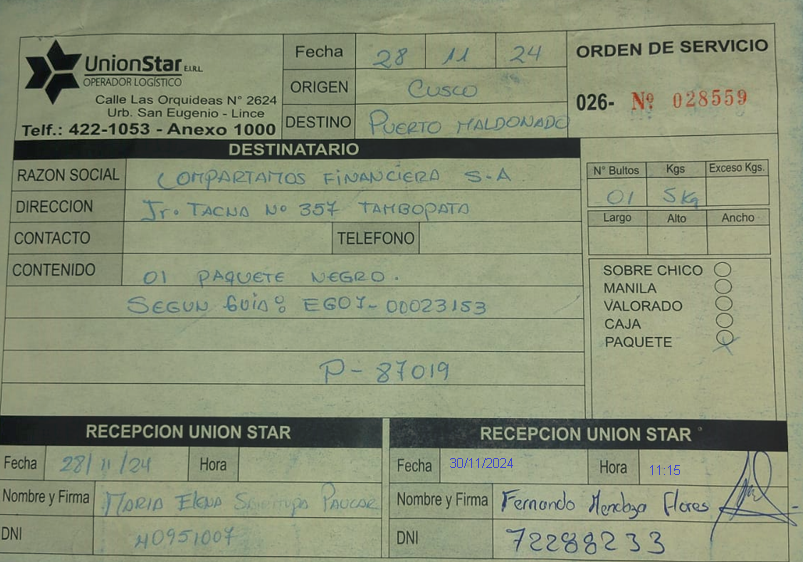 UnionStar E.I.R.L
OPERADOR LOGÍSTICO
Calle Las Orquideas N° 2624
Urb. San Eugenio - Lince
Telf.: 422-1053 - Anexo 1000
Fecha 28 11 24
ORIGEN CUSCO
DESTINO PUERTO MALDONADO
ORDEN DE SERVICIO
026- Nº 028559
DESTINATARIO
RAZON SOCIAL COMPARTAMOS FINANCIERA S.A
DIRECCION Jr. TACNA Nº 357 TAMBOPATA
CONTACTO TELEFONO
CONTENIDO 01 PAQUETE NEGRO.
SEGUN GUIA: EG07-00023153
P-87019
N° Bultos Kgs Exceso Kgs.
01 5Kg
Largo Alto Ancho
SOBRE CHICO
MANILA
VALORADO
CAJA
PAQUETE
RECEPCION UNION STAR
Fecha 28/11/24 Hora
Nombre y Firma MARIA ELENA PAUCAR
DNI 40951007
RECEPCION UNION STAR
Fecha 30/11/2024 Hora 11:15
Nombre y Firma Fernando Mendoza Flores
DNI 72288233